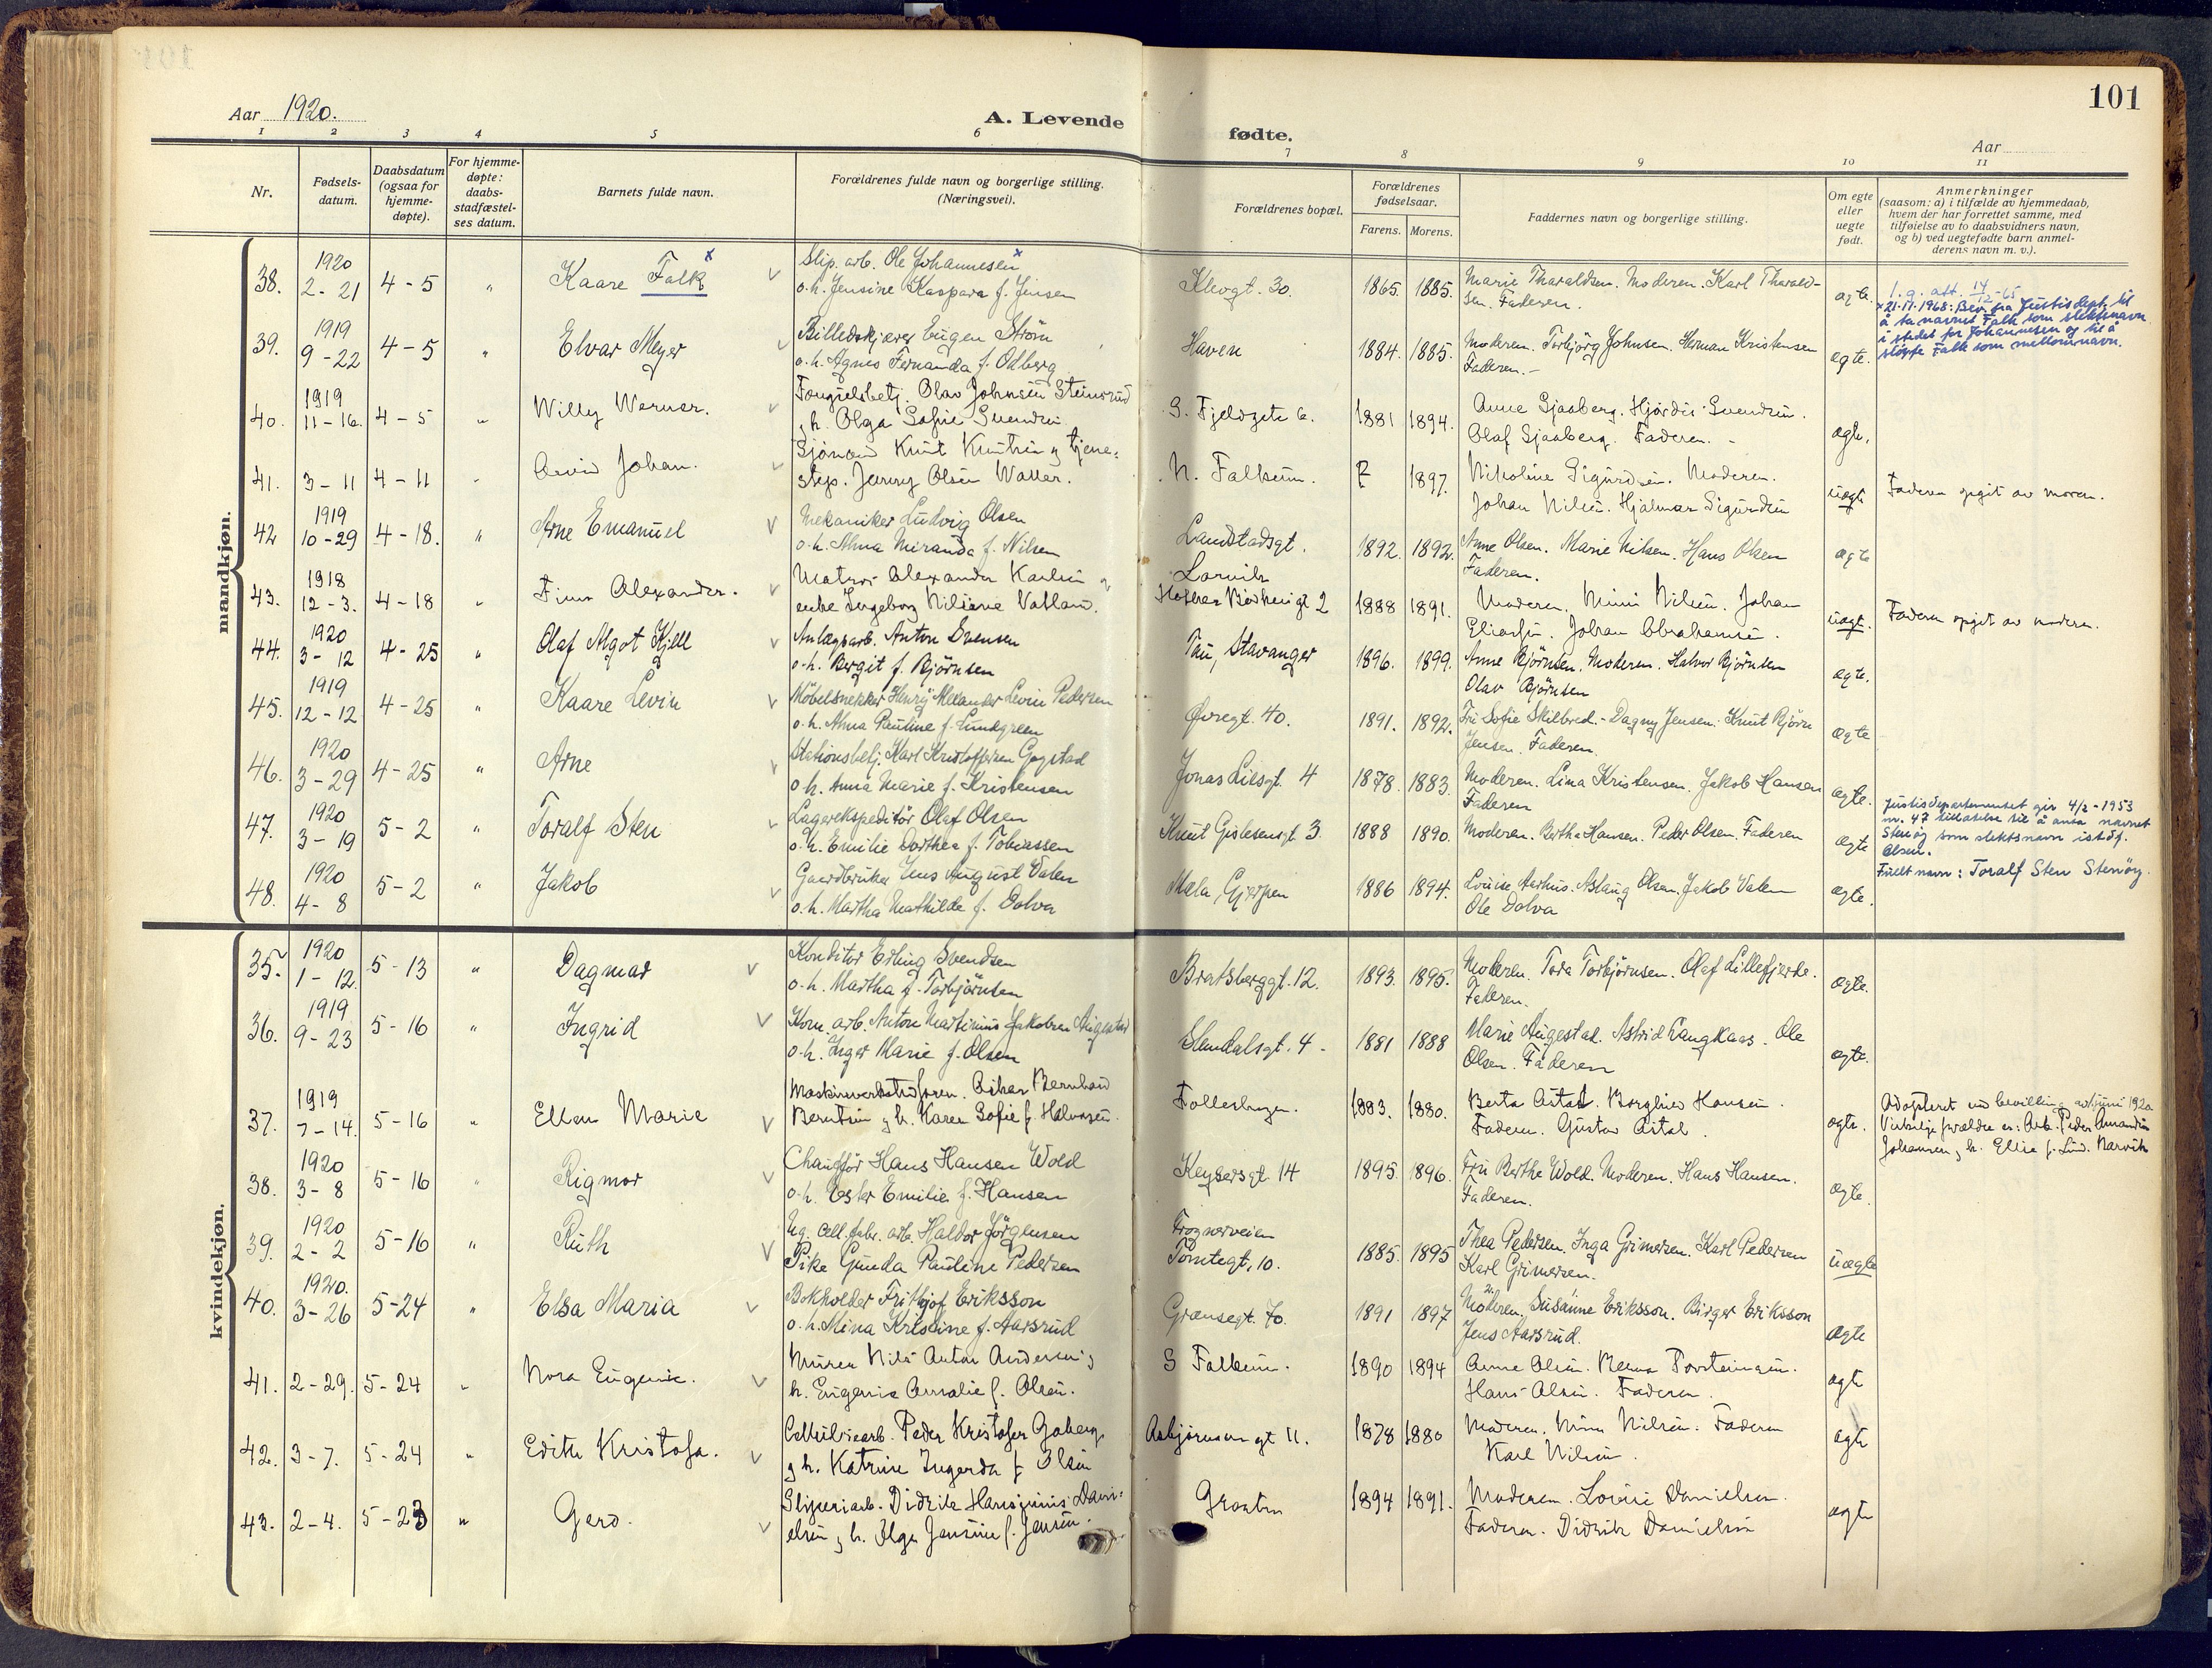 101
Aar 1920.
A. Levende fødte.
Aar
1 2 3 4 5 6 7 8 9 10 11
Nr. Fødsels-datum. Daabsdatum (ogsaa for hjemme-døpte). For hjemme-døpte: daabs-stadfæstel-ses datum. Barnets fulde navn. Forældrenes fulde navn og borgerlige stilling. (Næringsvei). Forældrenes bopæl. Forældrenes fødselsaar. Farens. Morens. Faddernes navn og borgerlige stilling. Om egte eller uegte født. Anmerkninger (saasom: a) i tilfælde av hjemmedaab, hvem der har forrettet samme, med tilføielse av to daabsvidners navn, og b) ved uegtefødte barn anmel-derens navn m. v.).
mandkjøn.
38. 1920 2-21 4-5 " Kaare Falk x Slip. arb. Ole Johannesen x
o. h. Jensine Kaspara f. Jensen Klevgt. 30. 1865. 1885. Marie Tharaldsen. Moderen. Karl Tharald-
sen. Faderen. ægte.
x 21.17.1968: Bev. fra Justisdept. til
å ta navnet Falk som slektsnavn
i stedet for Johannesen og til å
sløyfe Falk som mellomnavn.
39. 1919 9-22 4-5 " Elvar Meyer Billedskjærer Eugen Strøm
o. h. Agnes Fernanda f. Odberg Haven 1884. 1885. Moderen. Torbjörg Johnsen. Herman Kristensen
Faderen.- ægte.
40. 1919 11-16. 4-5 " Willy Werner. Fængselsbetj. Olav Johnsen Steinsrud
o. h. Olga Sofie Svendsen S. Fjeldgate 6. 1881 1894. Anne Sjaaberg. Hjørdis Svendsen.
Olaf Sjaaberg. Faderen. - ægte.
41. 3-11 4-11 " Arvid Johan. Sjömand Knut Knutsen og tjene-
step. Jenny Olsen Waller. N. Falkum. ? 1897. Nikoline Sigurdsen. Moderen.
Johan Nilsen. Hjalmar Sigurdsen uægte Faderen opgit av moren.
42 1919 10-29 4-18. " Arne Emanuel Mekaniker Ludvig Olsen
o. h. Alma Miranda f. Nilsen Landstadsgt. 1892. 1892. Anne Olsen. Marie Nilsen. Hans Olsen
Faderen. ægte
43. 1918 12-3. 4-18 " Finn Alexander. Matros Alexander Karlsen og
enke Ingeborg Niliane Vatland. Larvik
1888 1891. Moderen. Mimi Nilsen. Johan
Eliassen. Johan Abrahamsen. uægt. Faderen opgit av moderen.
44. 1920 3-12 4-25 " Olaf Algot Kjell Anlægsarb. Anton Svensen
o. h. Bergit f. Björnsen Tau, Stavanger 1896. 1899. Anne Björnsen. Moderen. Halvor Björnsen
Olav Björnsen ægte.
45. 1919 12-12 4-25 " Kaare Levin Möbelsnekker Henry Alexander Levin Pedersen
o. h. Alma Pauline f. Lundgreen Øvregt. 40. 1891. 1892. Fru Sofie Skilbred. - Dagny Jensen. Knut Björn
Jensen. Faderen. ægte
46. 1920 3-29 4-25 " Arne Stationsbetj. Karl Kristoffersen Gogstad
o. h. Anna Marie f. Kristensen Jonas Liesgt. 4 1878. 1883. Moderen. Lina Kristensen. Jakob Hansen
Faderen ægte.
47. 1920 3-19 5-2 " Toralf Sten Lagerekspeditör Olaf Olsen
o. h. Emilie Dorthea f. Tobiassen Knut Gislesensgt 3. 1888 1890. Moderen. Bertha Hansen. Peder Olsen. Faderen ægte
Justisdepartementet gir 4/2-1953
nr. 47 tillatelse til å anta navnet
Stenög som slektsnavn istdf.
Olsen.
Fuelt navn: Toralf Sten Stenög.
48. 1920 4-8 5-2 " Jakob Gaardbruker Jens August Valen
o. h. Martha Mathilde f. Dolva Mæla, Gjerpen 1886 1894. Louise Aarhus. Aslaug Olsen. Jakob Valen
Ole Dolva ægte.
kvindekjøn.
35. 1920 1-12 5-13 " Dagmar Konditor Erling Svendsen
o. h. Martha f. Torbjörnsen Bratsberggt. 12. 1893. 1895. Moderen. Tora Torbjörnsen. Olaf Lillefjerde.
Faderen. ægte.
36. 1919 9-23 5-16 " Ingrid Kom. arb. Anton Martinius Jakobsen Augestad
o. h. Inger Marie f. Olsen Slemdalsgt. 4 - 1881 1888 Marie Augestad. Astrid Langkaas. Ole
Olsen. Faderen ægte.
37. 1919 7-14. 5-16 " Ellen Marie Maskinverkstedforen. Oskar Bernhard
Berntsen o. h. Karen Sofie f. Halvorsen. Follestad 1883. 1880. Berta Aital. Borghild Hansen.
Faderen. Gustav Aital. ægte.
Adopteret ved bevilling av juni 1920
Virkelige forældre er: Arb. Peder Amandus
Johansen og h. Elise f. Lund. Narvik
38. 1920 3-8 5-16 " Rigmor Chauffør Hans Hansen Wold
o. h. Ester Emilie f. Hansen Keysersgt. 14 1895. 1896. Fru Berthe Wold. Moderen. Hans Hansen.
Faderen. ægte
39. 1920 2-2 5-16 " Ruth Ug. cell. fabr. arb. Haldor Jörgensen
Pike Gunda Pauline Pedersen Frognerveien
Tomtegt. 10. 1885. 1895 Thea Pedersen. Inga Grimersen. Karl Pedersen
Karl Grimersen. uægte
40. 1920. 3-26 5-24 " Elsa Maria Bokholder Frithjof Eriksson
o. h. Mina Kristine f. Aarsrud Grænsegt. 70. 1891 1897 Moderen. Susanne Eriksson. Birger Eriksson
Jens Aarsrud. ægte
41. 2-29. 5-24 " Nora Eugenie. Murer Nils Anton Andersen og
h. Eugenie Amalie f. Olsen. S Falkum. 1890 1894 Anne Olsen. Torsteinsen.
Hans Olsen. Faderen. ægte
42. 3-7. 5-24 " Edith Kristofa. Cellulosearb. Peder Kristofer Goberg
og h. Katrine Ingerda f. Olsen Asbjørnsens gt 11. 1878 1880 Moderen. Nilsen. Faderen
Karl Nilsen. ægte
43. 2-4. 5-23 " Gerd. Sliperiarb. Didrik Hansinius Dani-
elsen og h. Olga Jensine f. Jensen. Graaten 1894 1891. Moderen. Lovise Danielsen.
Faderen. Didrik Danielsen ægte